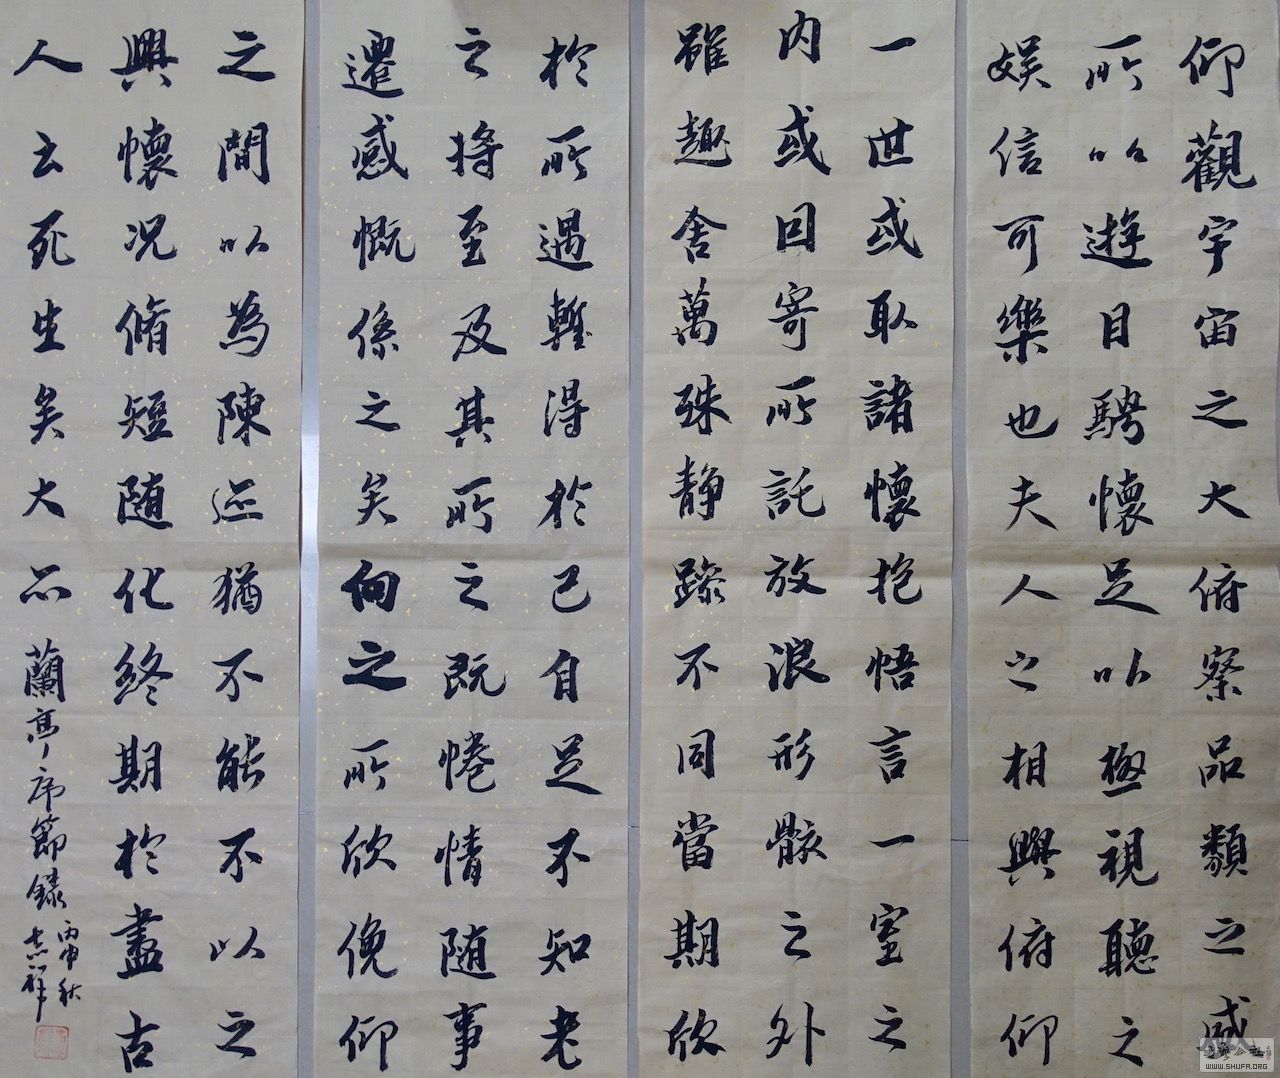 仰觀宇宙之大俯察品類之盛
所以遊目騁懷足以極視聽之
娛信可樂也夫人之相與俯仰
一世或取諸懷抱悟言一室之
内或因寄所託放浪形骸之外
雖趣舍萬殊静躁不同當期欣
於所遇蹔得於己自足不知老
之將至及其所之既惓情随事
遷感慨係之矣向之所欣俛仰
之間以為陳迹猶不能不以之
興懷况脩短随化終期於盡古
人云死生矣大
蘭亭序節録
丙申秋
志祥
书法公社
WWW.SHUFA.ORG